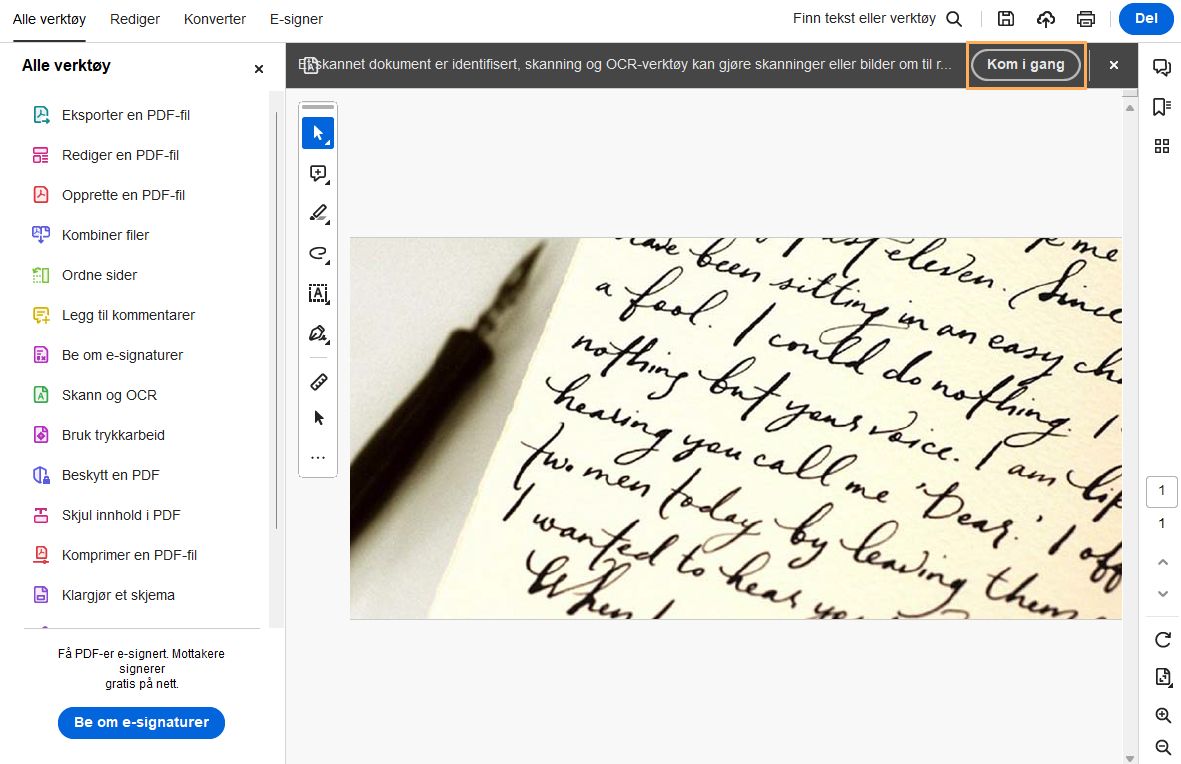 Alle verktøy
Rediger
Konverter
E-signer
Finn tekst eller verktøy
Del
Alle verktøy
skannet dokument er identifisert, skanning og OCR-verktøy kan gjøre skanninger eller bilder om til r...
Kom i gang
Eksporter en PDF-fil
Rediger en PDF-fil
Opprette en PDF-fil
Kombiner filer
Ordne sider
Legg til kommentarer
Be om e-signaturer
Skann og OCR
Bruk trykkarbeid
Beskytt en PDF
Skjul innhold i PDF
Komprimer en PDF-fil
Klargjør et skjema
Få PDF-er e-signert. Mottakere
signerer
gratis på nett.
Be om e-signaturer
me
eleven. (Since
have been sitting in an easy
a fool. I could do nothing. I
nothing but your voice. I am
hearing you call me 'Dear.' I
two men today by leaving them
I wanted to hear
When I
1
1